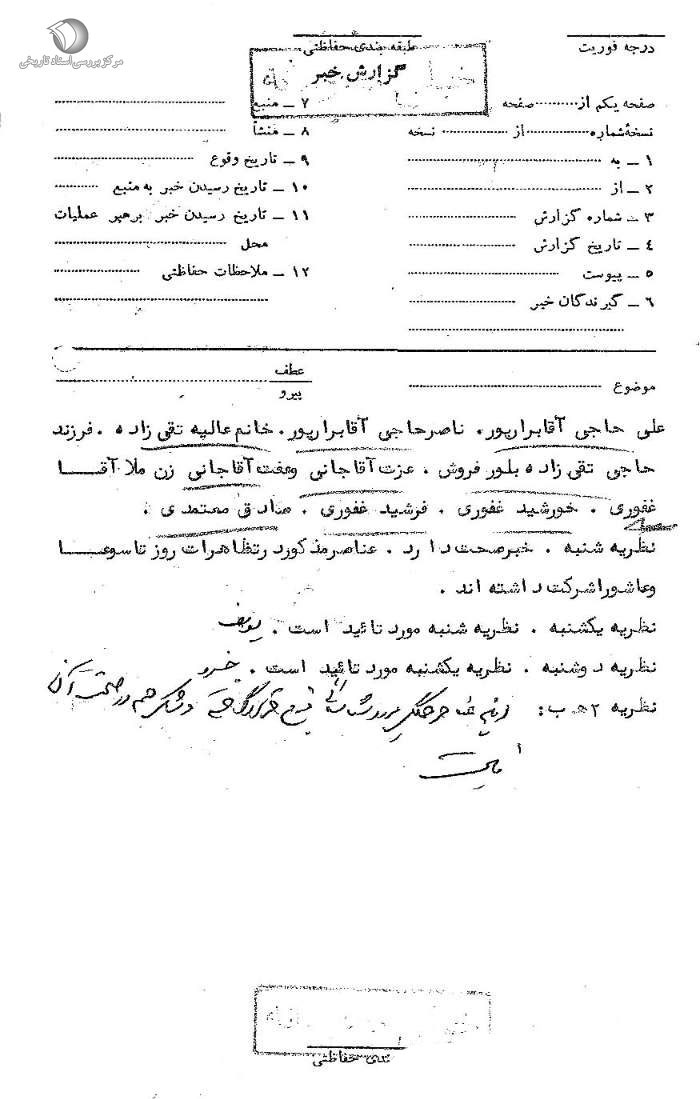 مرکز بررسی اسناد تاریخی
درجه فوریت
طبقه بندی حفاظتی
گزارش خبر
صفحه یکم از............صفحه
نسخهٔ شماره..................از ..................نسخه
۱ ــ به
۲ ــ از
۳ ــ شماره گزارش
۴ ــ تاریخ گزارش
۵ ــ پیوست
۶ ــ گیرندگان خبر
۷ ــ منبع
۸ ــ منشأ
۹ ــ تاریخ وقوع
۱۰ ــ تاریخ رسیدن خبر به منبع
۱۱ ــ تاریخ رسیدن خبر برهبر عملیات
محل
۱۲ ــ ملاحظات حفاظتی
موضوع
عطف
پیرو
علی حاجی آقابرارپور. ناصرحاجی آقابرارپور. خانم عالیه تقی زاده . فرزند
حاجی تقی زاده بلور فروش . عزت آقاجانی وعفت آقاجانی زن ملا آقا
غفوری . خورشید غفوری . فرشید غفوری . صادق معتمدی .
نظریه شنبه . خبرصحت دارد . عناصرمذکورد رتظاهرات روز تاسوعا
وعاشوراشرکت داشته اند .
نظریه یکشنبه . نظریه شنبه مورد تائید است .
نظریه دوشنبه . نظریه یکشنبه مورد تائید است . خسرو
نظریه ۲ هـ ب :
بندی حفاظتی